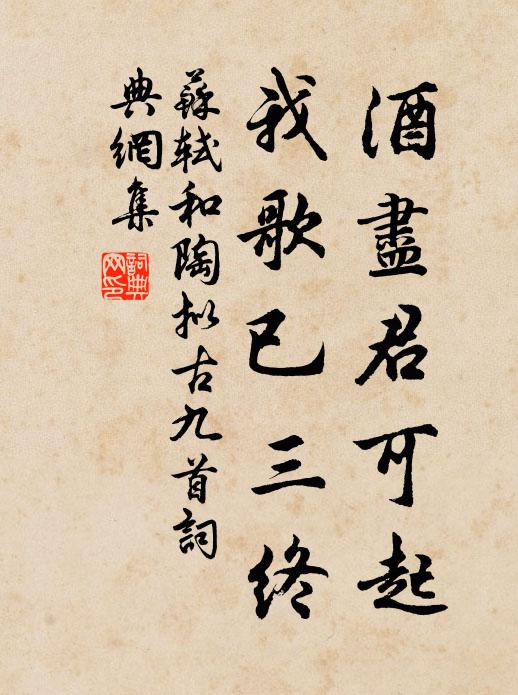 酒盡君可起
我歌已三終
蘇軾和陶擬古九首詞
典網集
詞典网印